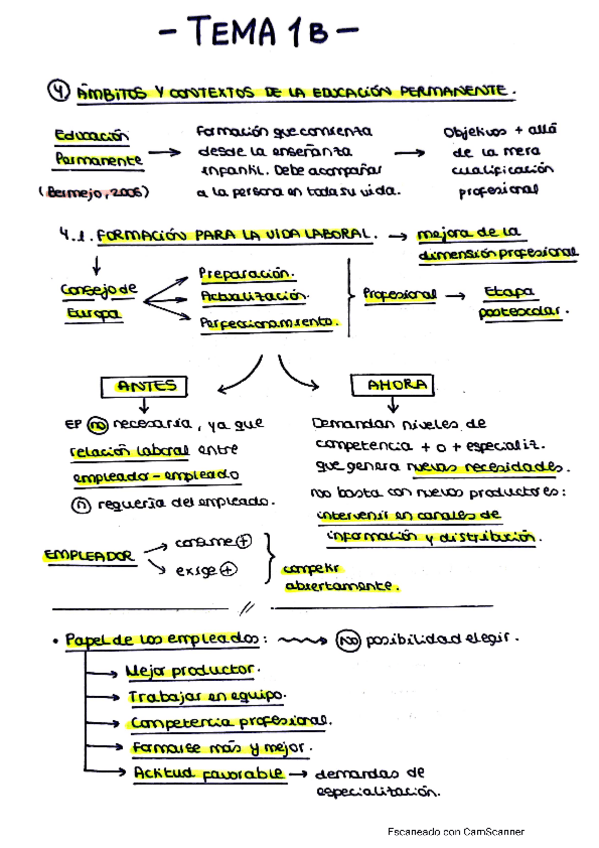 - TEMA 1B -
4) ÁMBITOS Y CONTEXTOS DE LA EDUCACIÓN PERMANENTE.
Educación Permanente (Bermejo, 2006) → Formación que comienza desde la enseñanza infantil. Debe acompañar a la persona en toda su vida. → Objetivos + allá de la mera cualificación profesional
4.1. FORMACIÓN PARA LA VIDA LABORAL. → mejora de la dimensión profesional
Consejo de Europa
Preparación.
Actualización.
Perfeccionamiento.
Profesional → Etapa postescolar.
ANTES
EP no necesaria, ya que
relación laboral entre
empleador-empleado
n requería del empleado.
EMPLEADOR
→ consume +
→ exige +
competir
abiertamente.
AHORA
Demandan niveles de
competencia + o + especializ.
que genera nuevas necesidades.
no basta con nuevos productores:
intervenir en canales de
información y distribución.
• Papel de los empleados: → no posibilidad elegir.
→ Mejor productor.
→ Trabajar en equipo.
→ Competencia profesional.
→ Formarse más y mejor.
→ Actitud favorable → demandas de
especialización.
Escaneado con CamScanner